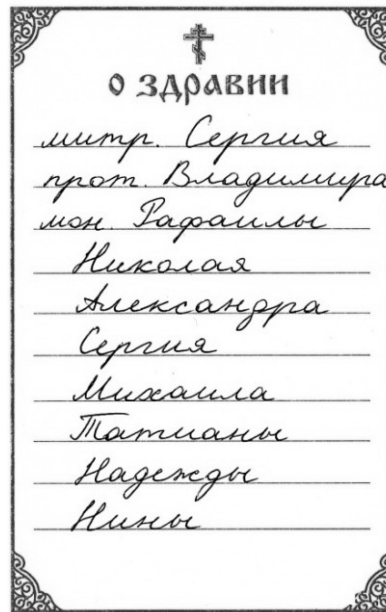 О ЗДРАВИИ
митр. Сергия
прот. Владимира
мон. Рафаилы
Николая
Александра
Сергия
Михаила
Татианы
Надежды
Нины